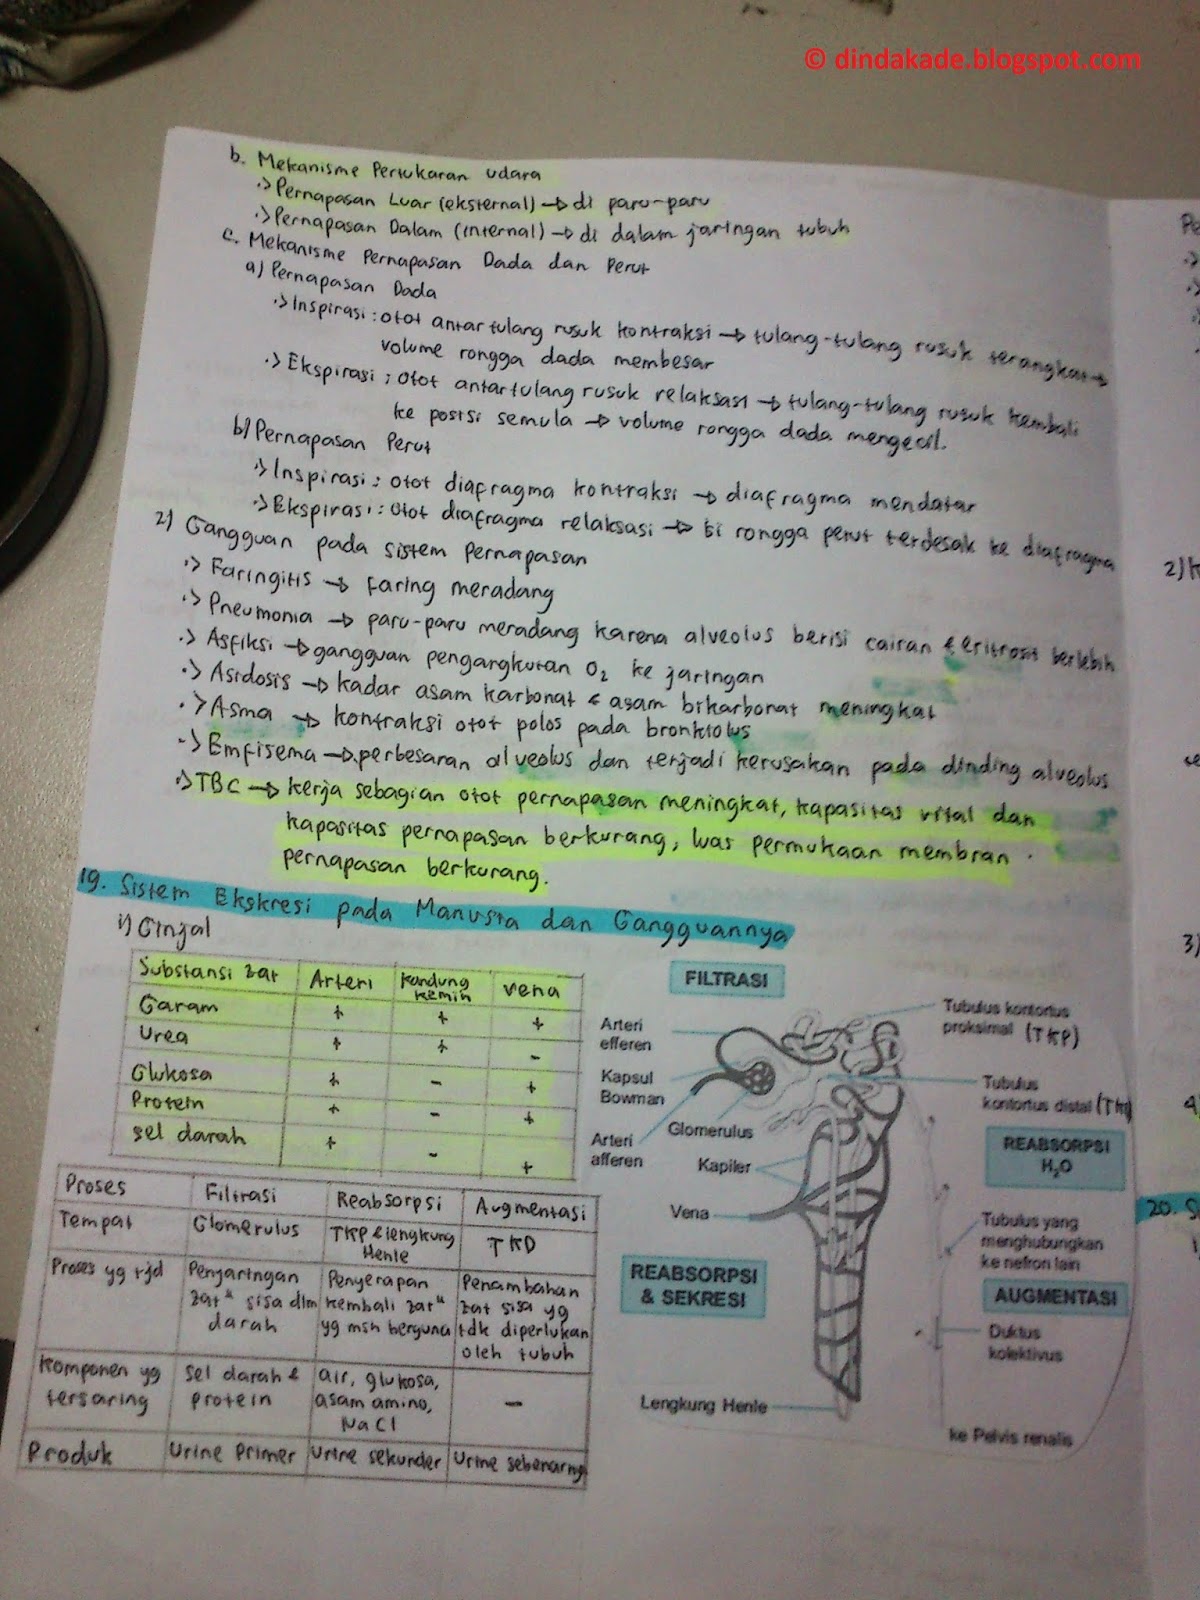 © dindakade.blogspot.com
b. Mekanisme Pertukaran udara
·> Pernapasan Luar (eksternal) → di paru-paru
·> Pernapasan Dalam (internal) → di dalam jaringan tubuh
c. Mekanisme Pernapasan Dada dan Perut
a) Pernapasan Dada
·> Inspirasi : otot antar tulang rusuk kontraksi → tulang-tulang rusuk terangkat →
volume rongga dada membesar
·> Ekspirasi ; otot antartulang rusuk relaksasi → tulang-tulang rusuk kembali
ke posisi semula → volume rongga dada mengecil.
b) Pernapasan Perut
·> Inspirasi : otot diafragma kontraksi → diafragma mendatar
·> Ekspirasi : otot diafragma relaksasi → isi rongga perut terdesak ke diafragma
2) Gangguan pada sistem pernapasan
·> Faringitis → faring meradang
·> Pneumonia → paru-paru meradang karena alveolus berisi cairan & eritrosit berlebih
·> Asfiksi → gangguan pengangkutan O₂ ke jaringan
·> Asidosis → kadar asam karbonat & asam bikarbonat meningkat
·> Asma → kontraksi otot polos pada bronkiolus
·> Emfisema → perbesaran alveolus dan terjadi kerusakan pada dinding alveolus
·> TBC → kerja sebagian otot pernapasan meningkat, kapasitas vital dan
kapasitas pernapasan berkurang, luas permukaan membran
pernapasan berkurang.
19. Sistem Ekskresi pada Manusia dan Gangguannya
1) Ginjal
Substansi zat Arteri Kandung kemih vena
Garam + + +
Urea + + -
Glukosa + - +
Protein + - +
sel darah + - +
Proses Filtrasi Reabsorpsi Augmentasi
Tempat Glomerulus TKP & lengkung Henle TKD
Proses yg trjd Penyaringan zat" sisa dlm darah Penyerapan kembali zat" yg msh berguna Penambahan zat sisa yg tdk diperlukan oleh tubuh
Komponen yg tersaring sel darah & protein air, glukosa, asam amino, NaCl -
Produk Urine Primer Urine sekunder Urine sebenarnya
FILTRASI
Arteri
efferen
Kapsul
Bowman
Arteri
afferen
Glomerulus
Kapiler
Vena
REABSORPSI
& SEKRESI
Lengkung Henle
Tubulus kontortus
proksimal (TKP)
Tubulus
kontortus distal (TKD)
REABSORPSI
H₂O
Tubulus yang
menghubungkan
ke nefron lain
AUGMENTASI
Duktus
kolektivus
ke Pelvis renalis
Pe
2) K
3)
4)
20. S